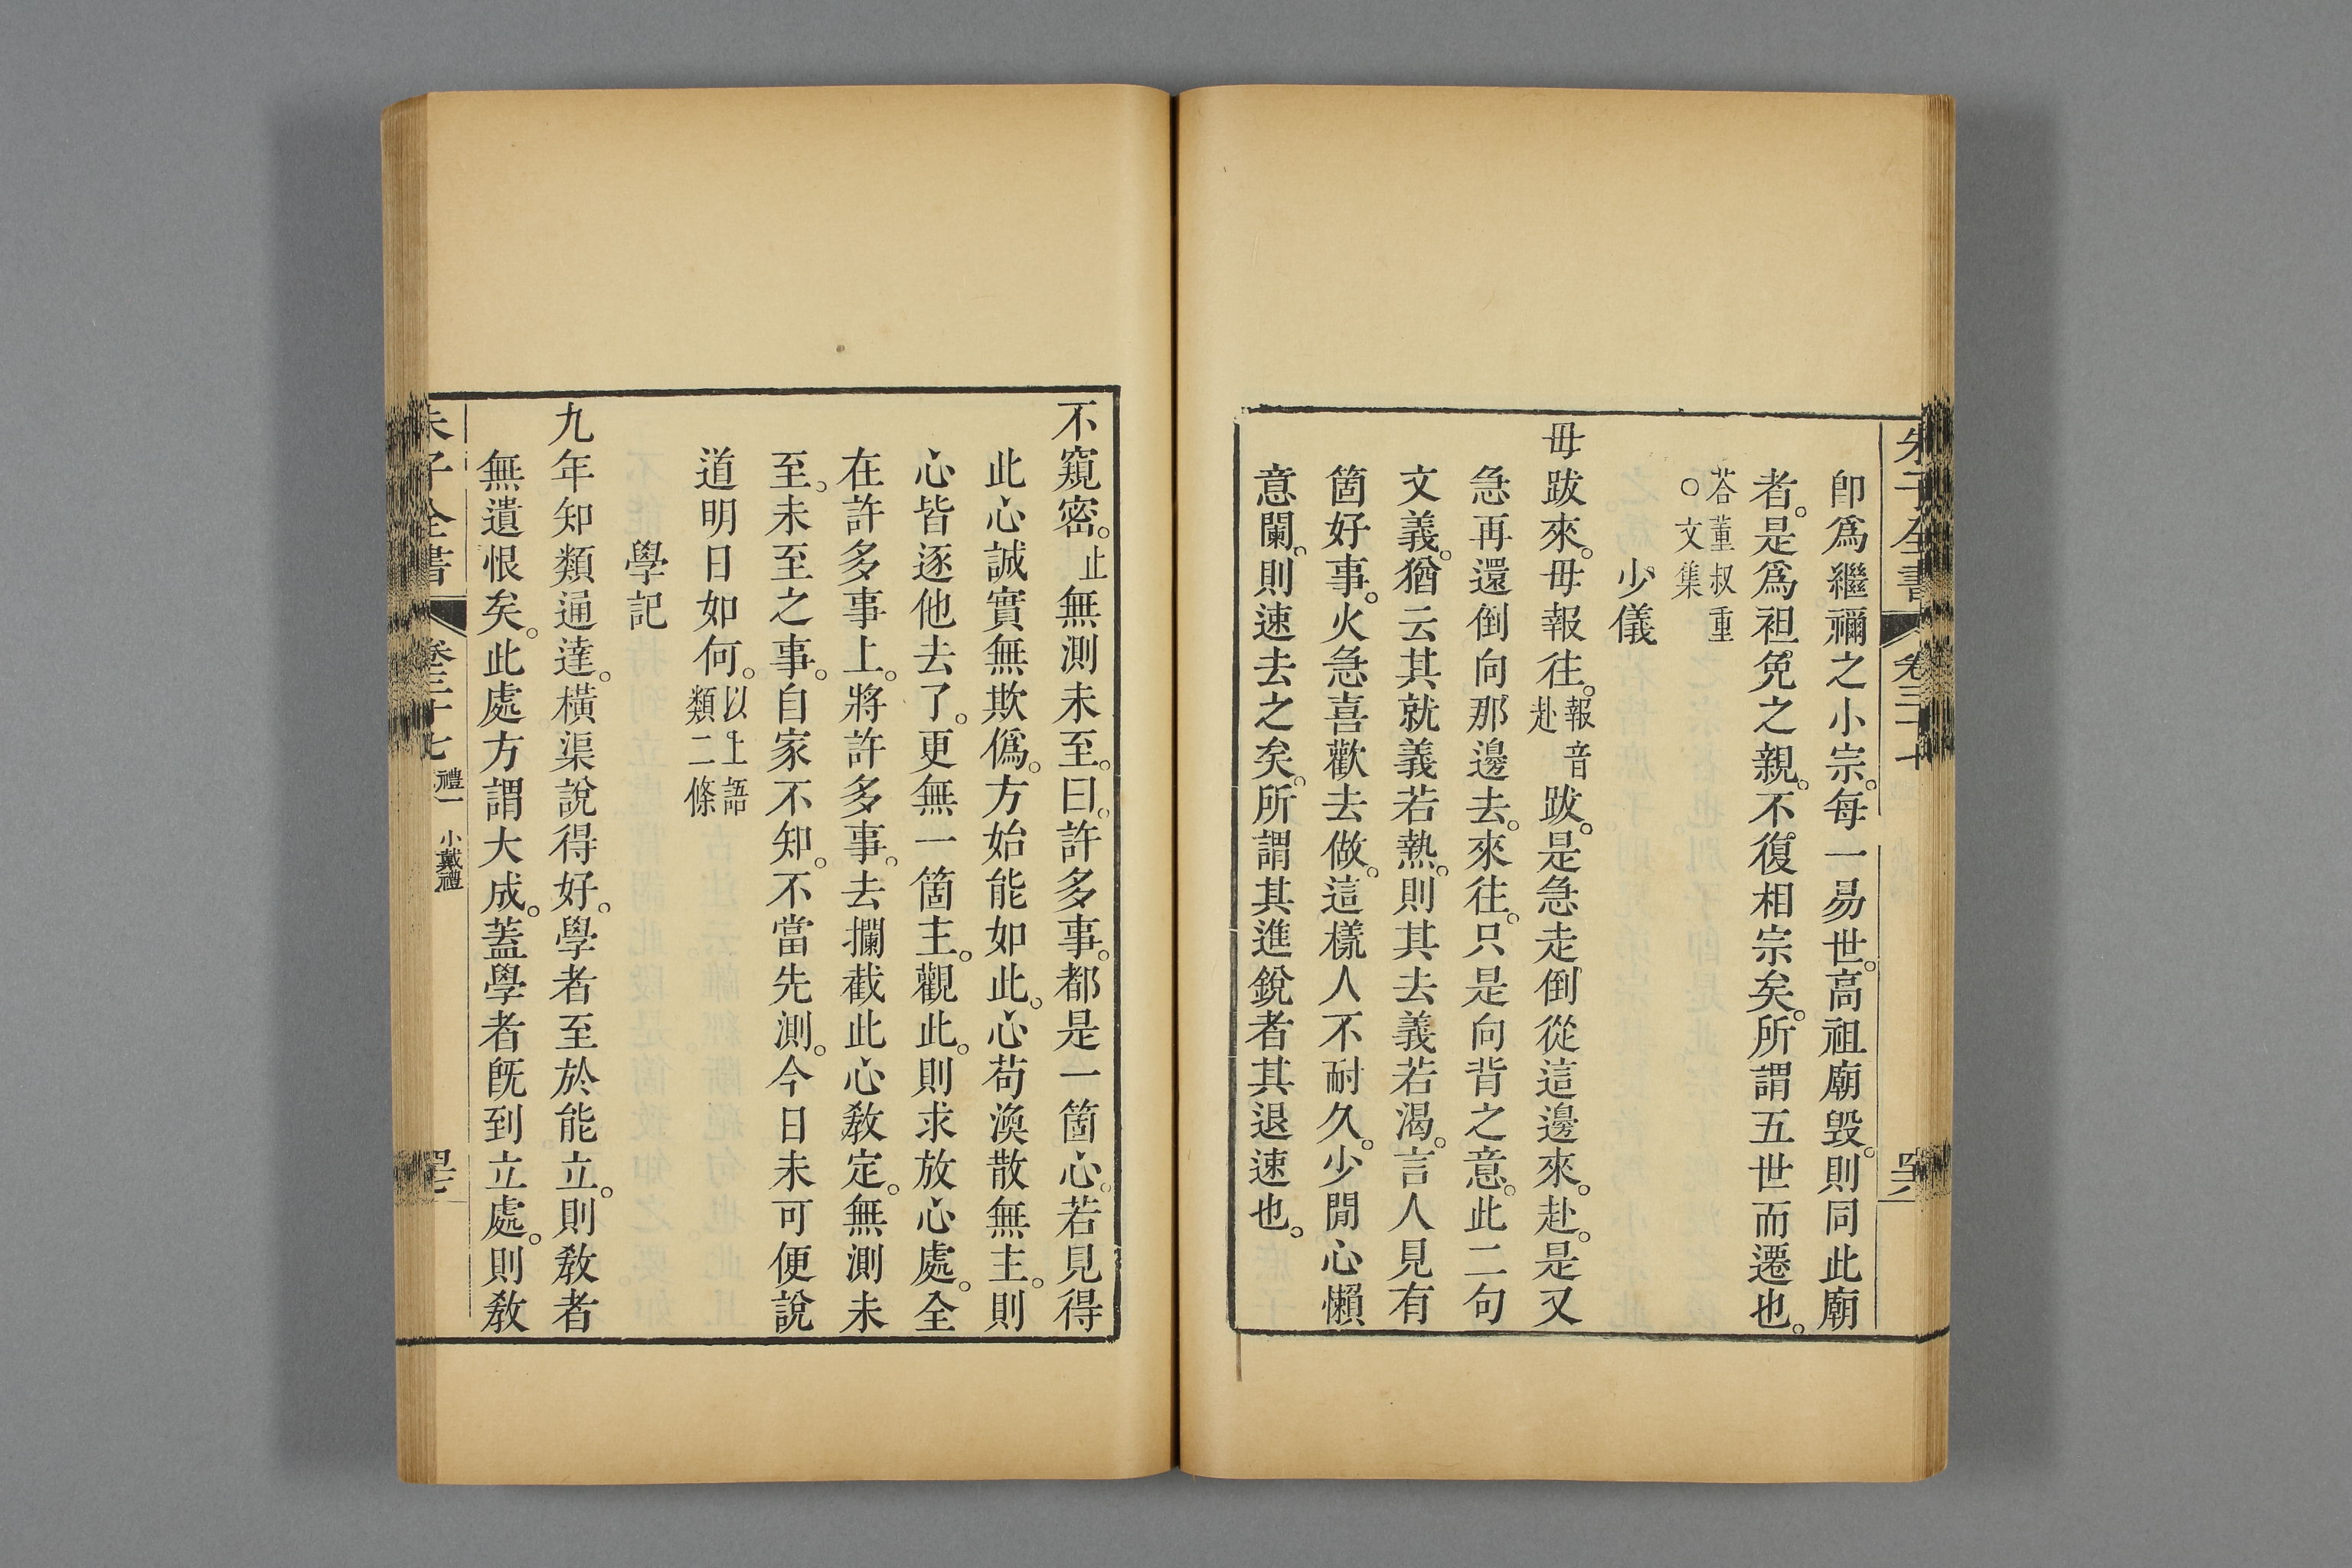 朱子全書 卷三十七
卽爲繼禰之小宗。每一易世。高祖廟毀。則同此廟
者。是爲袒免之親。不復相宗矣。所謂五世而遷也。
荅董叔重
○文集
少儀
毋跋來。毋報往。報音赴跋。是急走倒從這邊來。赴。是又
急再還倒向那邊去。來往。只是向背之意。此二句
文義。猶云其就義若熱。則其去義若渴。言人見有
箇好事。火急喜歡去做。這樣人不耐久。少閒心懶
意闌。則速去之矣。所謂其進銳者其退速也。
不窺密。止無測未至。曰。許多事。都是一箇心。若見得
此心誠實無欺僞。方始能如此。心苟渙散無主。則
心皆逐他去了。更無一箇主。觀此。則求放心處。全
在許多事上。將許多事。去攔截此心敎定。無測未
至。未至之事。自家不知。不當先測。今日未可便說
道明日如何。以上語類二條
學記
九年知類通達。橫渠說得好。學者至於能立。則敎者
無遺恨矣。此處方謂大成。蓋學者旣到立處。則敎
朱子全書 卷三十七 禮一 小戴禮